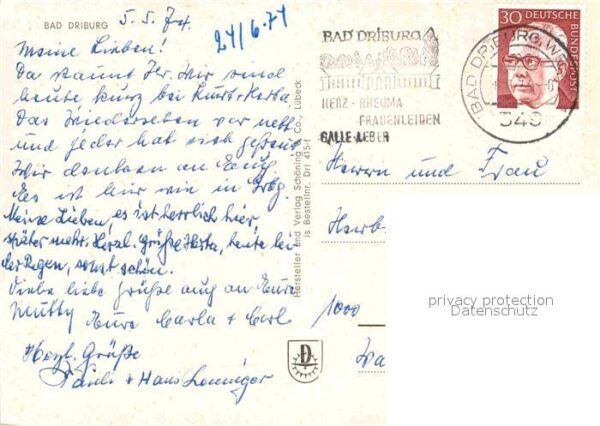 BAD DRIBURG
5.5.74
24/6.74
Meine Lieben!
Da staunt Ihr. Wir sind
heute kurz bei Kurt + Herta.
Das Wiedersehen war nett
und jeder hat sich gefreut
Wir denken an Euch.
Es ist hier wie in
Meine Lieben, es ist herrlich hier
später mehr. Herzl. Grüße Herta, heute bei
der Regen, sonst schön.
Viele liebe Grüße auch an Eure
Mutty Eure Carla + Carl
Herzl. Grüße
Hans
Hersteller und Verlag Schöning & Co., Lübeck
Bestellnr. Dri 415-1
BAD DRIBURG
HERZ - RHEUMA
FRAUENLEIDEN
GALLE-LEBER
30 DEUTSCHE BUNDESPOST
BAD DRIBURG, WESTF
349
Herrn und Frau
Herb
1000
privacy protection
Datenschutz